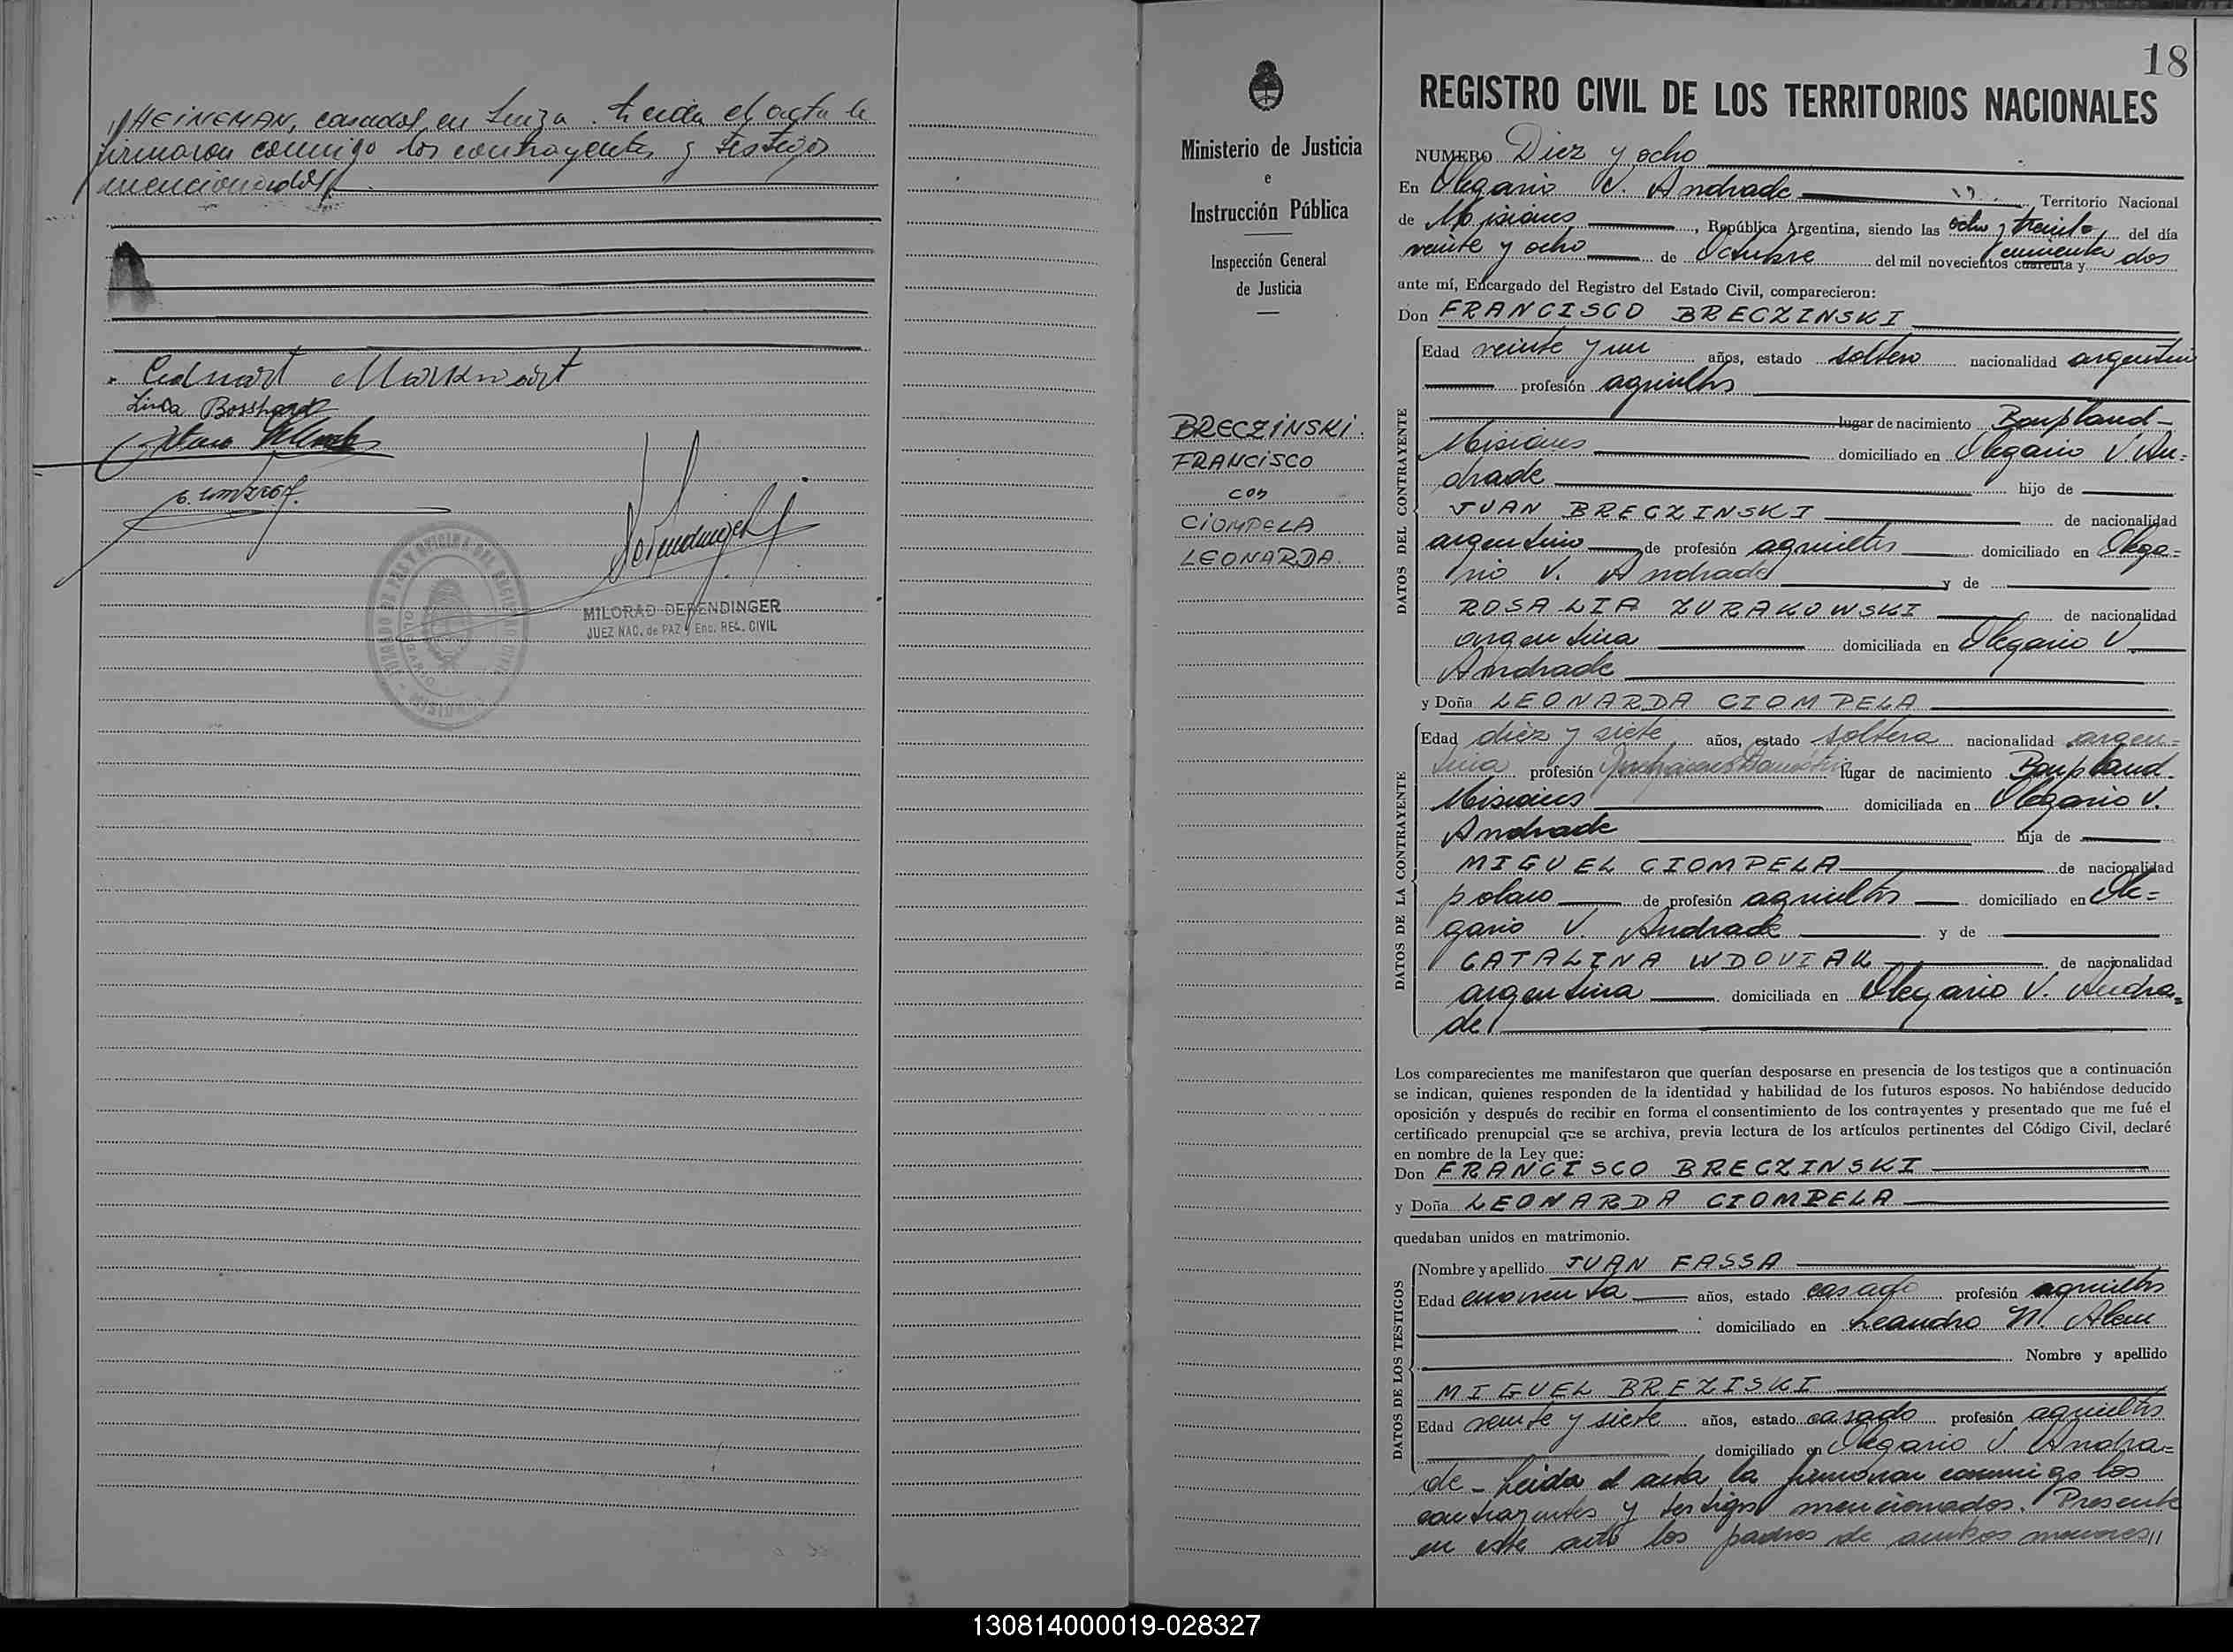 HEINEMAN, casados en Suiza. Leida el acta la
firmaron conmigo los contrayentes y testigos
mencionados
Eduard Markwart
Linda Bosshard
MILORAD DERENDINGER
JUEZ NAC. de PAZ y Enc. REG. CIVIL
Ministerio de Justicia
e
Instrucción Pública
Inspección General
de Justicia
BRECZINSKI.
FRANCISCO
con
CIOMPELA
LEONARDA.
18
REGISTRO CIVIL DE LOS TERRITORIOS NACIONALES
NUMERO Diez y ocho
En Olegario V. Andrade Territorio Nacional
de Misiones, República Argentina, siendo las ocho y treinta, del día
veinte y ocho de Octubre del mil novecientos cuarenta y cincuenta dos
ante mí, Encargado del Registro del Estado Civil, comparecieron:
Don FRANCISCO BRECZINSKI
DATOS DEL CONTRAYENTE
Edad veinte y un años, estado soltero nacionalidad argentino
profesión agricultor
lugar de nacimiento Bonpland-
Misiones domiciliado en Olegario V. An=
drade hijo de
JUAN BRECZINSKI de nacionalidad
argentino de profesión agricultor domiciliado en Olega=
rio V. Andrade y de
ROSALIA ZURAKOWSKI de nacionalidad
argentina domiciliada en Olegario V.
Andrade
y Doña LEONARDA CIOMPELA
DATOS DE LA CONTRAYENTE
Edad diez y siete años, estado soltera nacionalidad argen=
tina profesión lugar de nacimiento Bonpland.
Misiones domiciliada en Olegario V.
Andrade hija de
MIGUEL CIOMPELA de nacionalidad
polaco de profesión agricultor domiciliado en Ole=
gario V. Andrade y de
CATALINA WDOVIAK de nacionalidad
argentina domiciliada en Olegario V. Andra=
de
Los comparecientes me manifestaron que querían desposarse en presencia de los testigos que a continuación
se indican, quienes responden de la identidad y habilidad de los futuros esposos. No habiéndose deducido
oposición y después de recibir en forma el consentimiento de los contrayentes y presentado que me fué el
certificado prenupcial que se archiva, previa lectura de los artículos pertinentes del Código Civil, declaré
en nombre de la Ley que:
Don FRANCISCO BRECZINSKI
y Doña LEONARDA CIOMPELA
quedaban unidos en matrimonio.
DATOS DE LOS TESTIGOS
Nombre y apellido JUAN FASSA
Edad cuarenta años, estado casado profesión agricultor
domiciliado en Leandro N. Alem
Nombre y apellido
MIGUEL BREZISKI
Edad veinte y siete años, estado casado profesión agricultor
domiciliado en Olegario V. Andra=
de - Leida el acta la firmaron conmigo los
contrayentes y testigos mencionados. Presente
en este acto los padres de ambos menores,,
130814000019-028327